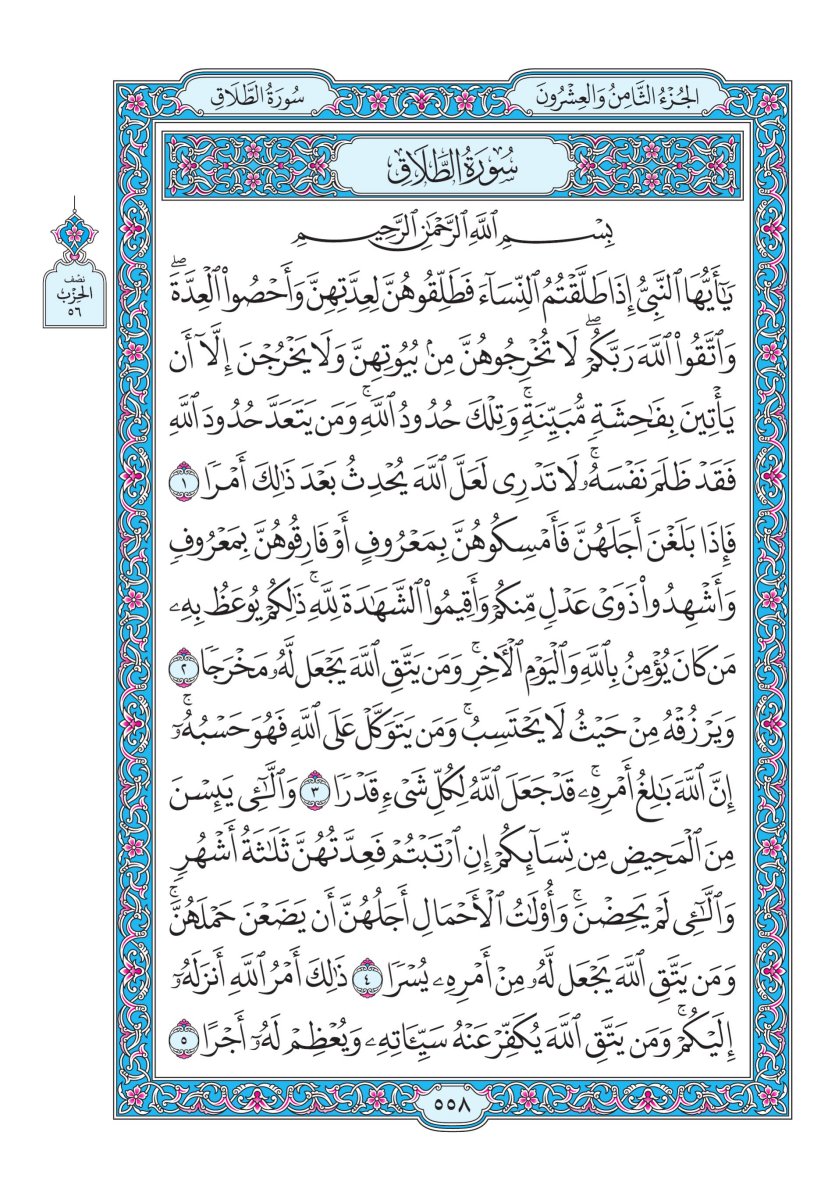 الجُزْءُ الثَّامِنُ وَالعِشْرُونَ
سُورَةُ الطَّلَاقِ
سُورَةُ الطَّلَاقِ
بِسْمِ ٱللَّهِ ٱلرَّحْمَٰنِ ٱلرَّحِيمِ
يَٰٓأَيُّهَا ٱلنَّبِيُّ إِذَا طَلَّقْتُمُ ٱلنِّسَآءَ فَطَلِّقُوهُنَّ لِعِدَّتِهِنَّ وَأَحْصُوا۟ ٱلْعِدَّةَۖ
وَٱتَّقُوا۟ ٱللَّهَ رَبَّكُمْۖ لَا تُخْرِجُوهُنَّ مِنۢ بُيُوتِهِنَّ وَلَا يَخْرُجْنَ إِلَّآ أَن
يَأْتِينَ بِفَٰحِشَةٍ مُّبَيِّنَةٍۚ وَتِلْكَ حُدُودُ ٱللَّهِۚ وَمَن يَتَعَدَّ حُدُودَ ٱللَّهِ
فَقَدْ ظَلَمَ نَفْسَهُۥۚ لَا تَدْرِى لَعَلَّ ٱللَّهَ يُحْدِثُ بَعْدَ ذَٰلِكَ أَمْرًا ١
فَإِذَا بَلَغْنَ أَجَلَهُنَّ فَأَمْسِكُوهُنَّ بِمَعْرُوفٍ أَوْ فَارِقُوهُنَّ بِمَعْرُوفٍ
وَأَشْهِدُوا۟ ذَوَىْ عَدْلٍ مِّنكُمْ وَأَقِيمُوا۟ ٱلشَّهَٰدَةَ لِلَّهِۚ ذَٰلِكُمْ يُوعَظُ بِهِۦ
مَن كَانَ يُؤْمِنُ بِٱللَّهِ وَٱلْيَوْمِ ٱلْأَخِرِۚ وَمَن يَتَّقِ ٱللَّهَ يَجْعَل لَّهُۥ مَخْرَجًا ٢
وَيَرْزُقْهُ مِنْ حَيْثُ لَا يَحْتَسِبُۚ وَمَن يَتَوَكَّلْ عَلَى ٱللَّهِ فَهُوَ حَسْبُهُۥٓۚ
إِنَّ ٱللَّهَ بَٰلِغُ أَمْرِهِۦۚ قَدْ جَعَلَ ٱللَّهُ لِكُلِّ شَىْءٍ قَدْرًا ٣ وَٱلَّٰٓـِٔى يَئِسْنَ
مِنَ ٱلْمَحِيضِ مِن نِّسَآئِكُمْ إِنِ ٱرْتَبْتُمْ فَعِدَّتُهُنَّ ثَلَٰثَةُ أَشْهُرٍ
وَٱلَّٰٓـِٔى لَمْ يَحِضْنَۚ وَأُو۟لَٰتُ ٱلْأَحْمَالِ أَجَلُهُنَّ أَن يَضَعْنَ حَمْلَهُنَّۚ
وَمَن يَتَّقِ ٱللَّهَ يَجْعَل لَّهُۥ مِنْ أَمْرِهِۦ يُسْرًا ٤ ذَٰلِكَ أَمْرُ ٱللَّهِ أَنزَلَهُۥٓ
إِلَيْكُمْۚ وَمَن يَتَّقِ ٱللَّهَ يُكَفِّرْ عَنْهُ سَيِّـَٔاتِهِۦ وَيُعْظِمْ لَهُۥٓ أَجْرًا ٥
نصف
الحزب
٥٦
٥٥٨